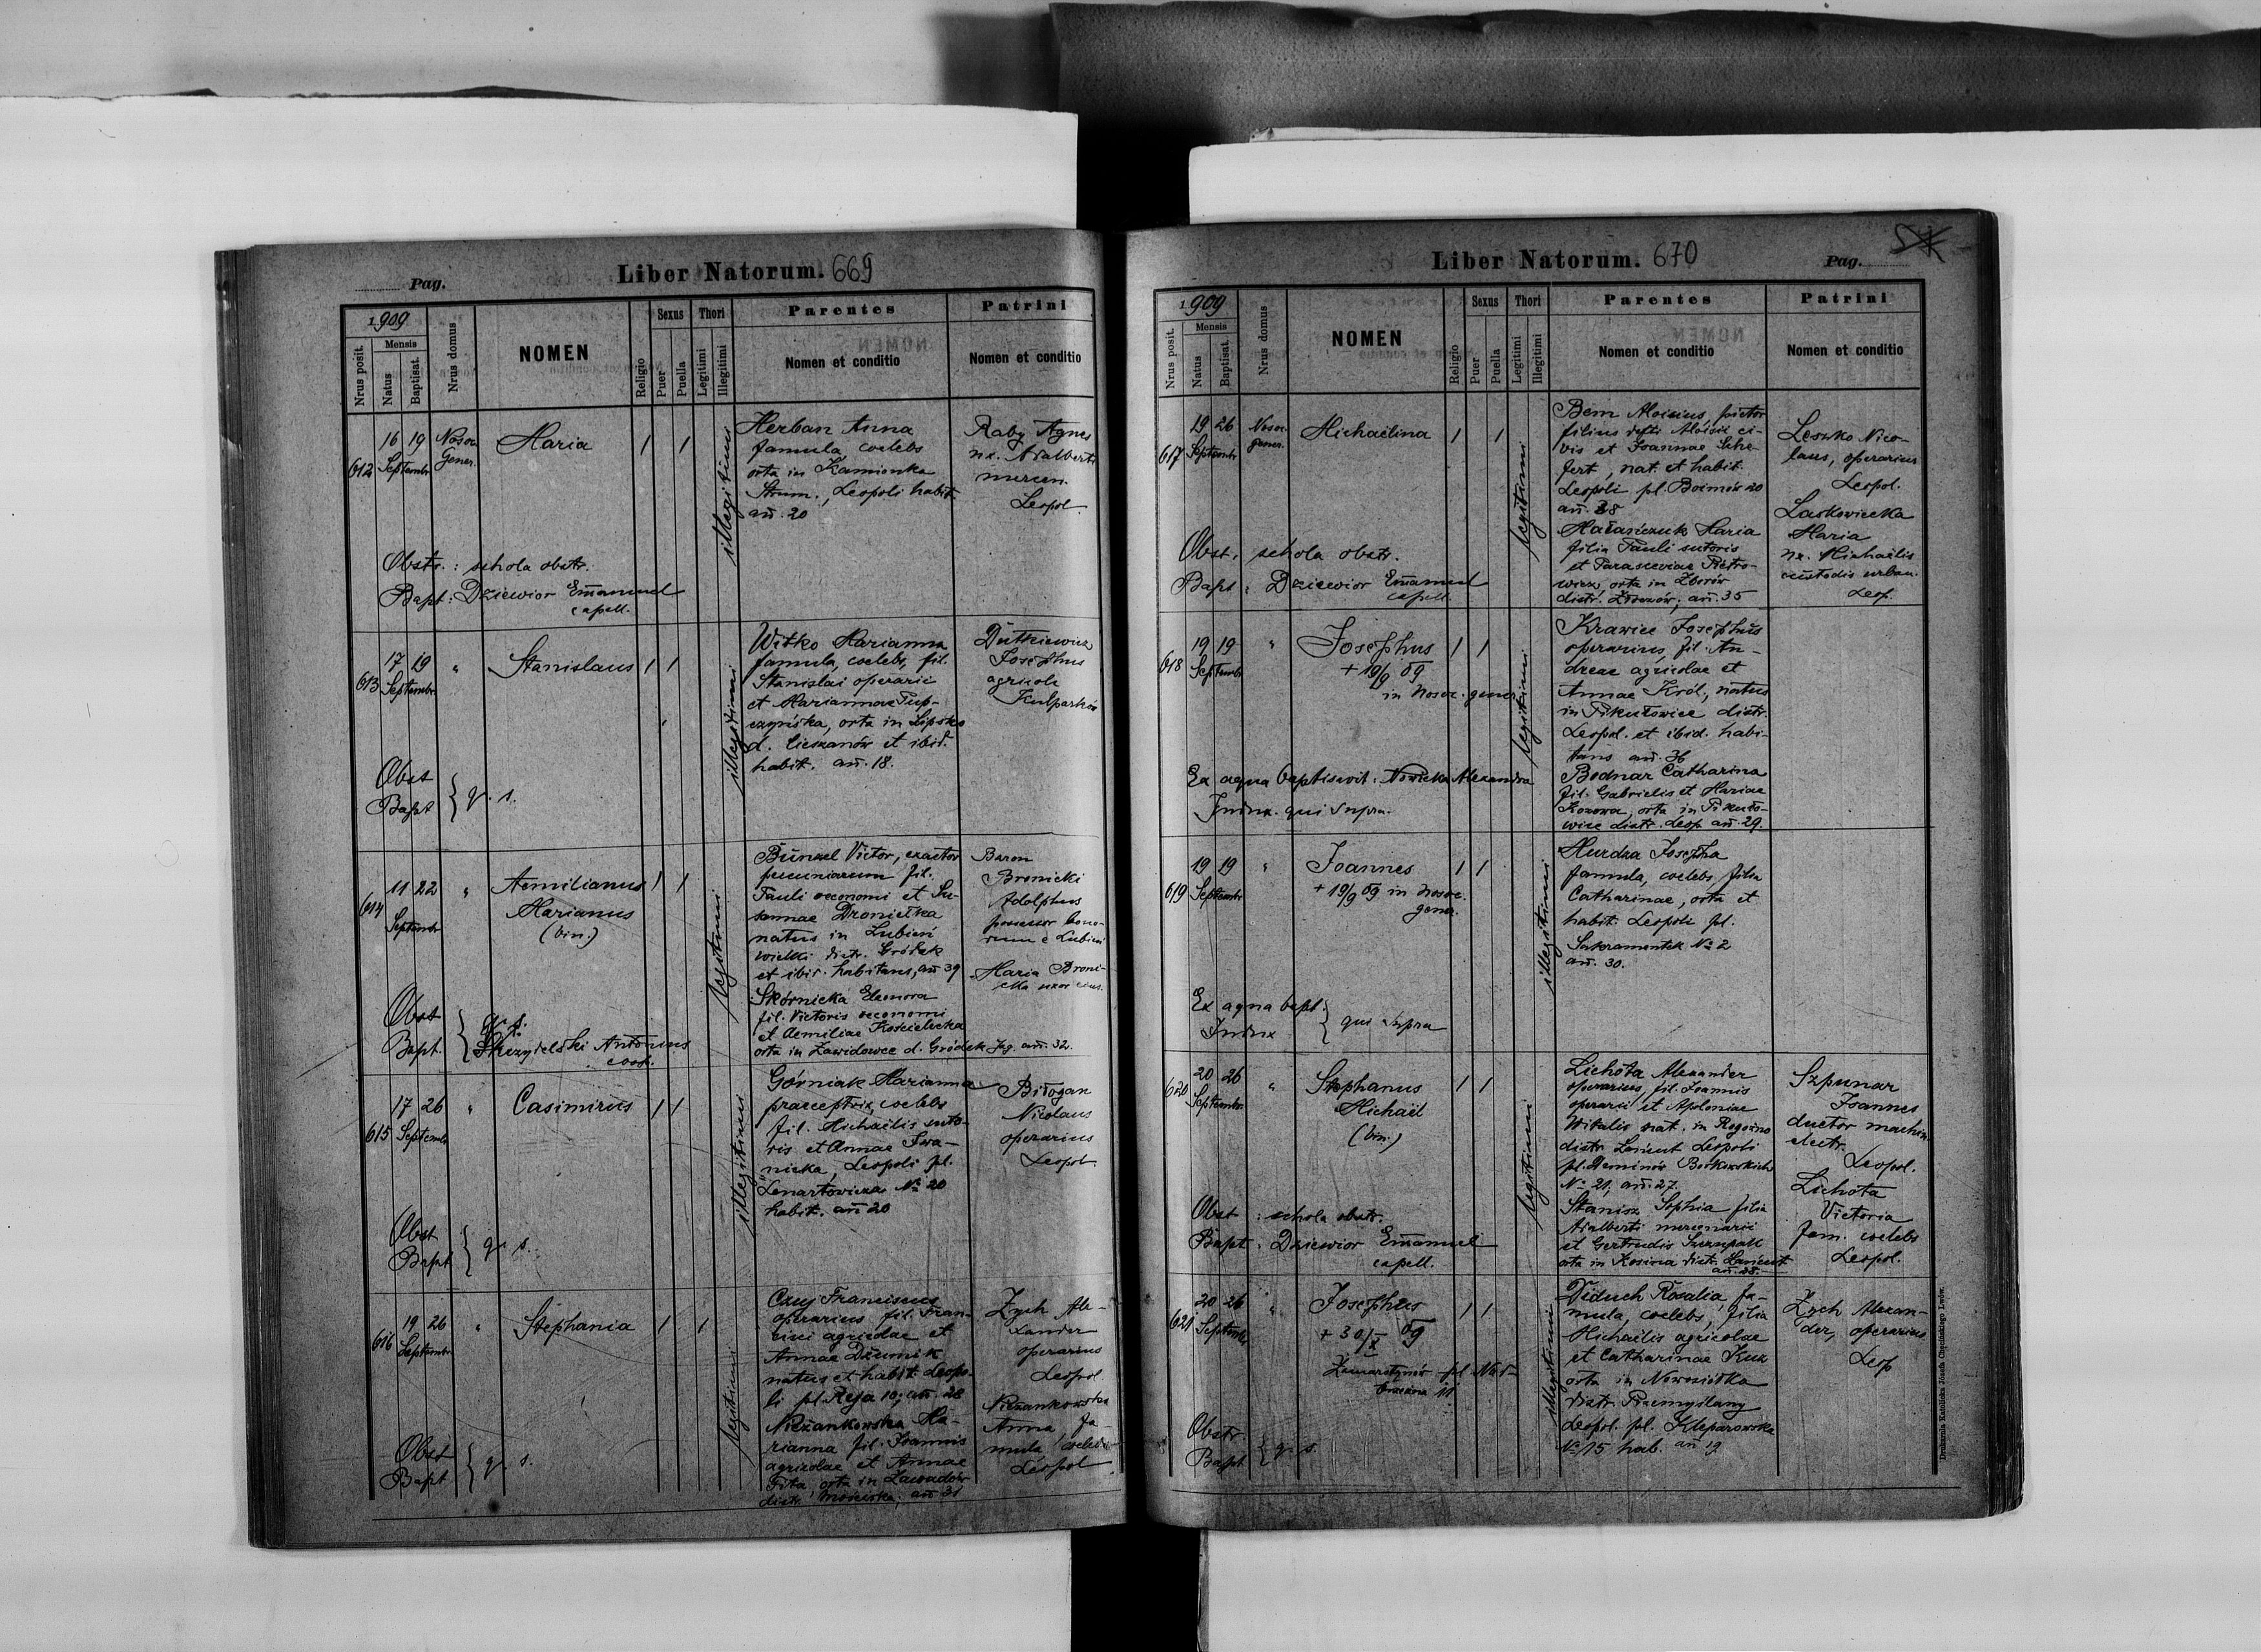 Pag.
Liber Natorum. 669
1909
Nrus posit.
Mensis
Natus
Baptisat.
Nrus domus
NOMEN
Religio
Sexus
Puer
Puella
Thori
Legitimi
Illegitimi
Parentes
Nomen et conditio
Patrini
Nomen et conditio
612
16 19
Septembr
Nosoc
Gener.
Maria
illegitimi
Herban Anna
famula, coelebs
orta in Kamionka
Strum., Leopoli habit.
añ. 20
Raby Agnes
ux. Adalberti
mercen.
Leopol.
Obstr.: schola obstr.
Bapt: Dziewior Emanuel
capell.
613
17 19
Septembr
"
Stanislaus
illegitimi
Witko Marianna
famula, coelebs, fil.
Stanislai operarii
et Mariannae Tup-
czyńska, orta in Lipsko
d. Cieszanów et ibid.
habit. añ. 18.
Dutkiewicz
Josephus
agricola
Kulparków
Obst
Bapt } q. s.
614
11 22
Septembr
"
Aemilianus
Marianus
(bin.)
legitimi
Bünzel Victor, exactor
pecuniarum fil.
Pauli oeconomi et Su-
sannae Dronietka
natus in Lubień
wielki distr. Gródek
et ibid. habitans, añ 39
Skórnicka Eleonora
fil. Victoris oeconomi
et Aemiliae Kościelecka
orta in Zawidowce d. Gródek Jag. añ. 32.
Baron
Bronicki
Adolphus
possessor bono-
rum e Lubień
Maria Broni-
cka uxor eius.
Obst
Bapt. { q. s.
Skrzydelski Antonius
coop.
615
17 26
Septembr
"
Casimirus
illegitimi
Górniak Marianna
praeceptrix, coelebs
fil. Michaëlis suto-
ris et Annae Iwa-
nicka, Leopoli pl.
Lenartowicza № 20
habit. añ 20
Bilogan
Nicolaus
operarius
Leopol.
Obst
Bapt } q. s.
616
19 26
Septembr
"
Stephania
legitimi
Czuj Franciscus
operarius fil. Fran-
cisci agricolae et
Annae Dziumik
natus et habit. Leopo-
li pl. Reja 10; añ. 28
Niżankowska Ma-
rianna fil. Joannis
agricolae et Annae
Fita, orta in Zawadów
distr. Mościska, añ 31
Zych Ale-
xander
operarius
Leopol
Niżankowska
Anna fa-
mula coelebs
Leopol
Obst
Bapt } q. s.
Liber Natorum. 670
Pag.
1909
Nrus posit.
Mensis
Natus
Baptisat.
Nrus domus
NOMEN
Religio
Sexus
Puer
Puella
Thori
Legitimi
Illegitimi
Parentes
Nomen et conditio
Patrini
Nomen et conditio
617
19 26
Septembr
Nosoc.
gener.
Michaëlina
legitimi
Bem Aloisius, pictor
filius defti Aloisii ci-
vis et Joannae Sche-
fert, nat. et habit.
Leopoli pl. Boimów 20
añ. 38
Maria
filia Pauli sutoris
et Parasceviae Pietro-
wicz, orta in Zborów
distr. Złoczów; añ. 35
Leszko Nico-
laus, operarius
Leopol.
Laskowiecka
Maria
ux. Michaëlis
custodis urban.
Leop.
Obst: schola obstr.
Bapt: Dziewior Emanuel
capell.
618
19 19
Septembr
"
Josephus
+ 19/9 09
in Nosoc. gener.
legitimi
Krawiec Josephus
operarius, fil. An-
dreae agricolae et
Annae Król, natus
in Pikułowice distr.
Leopol. et ibid. habi-
tans añ. 36
Bodnar Catharina
fil. Gabrielis et Mariae
Kozowa, orta in Pikuło-
wice distr. Leop. añ. 29.
Ex aqua baptisavit: Nowicka Alexandra
Indux. qui supra.
619
19 19
Septembr
"
Joannes
+ 19/9 09 in Nosoc.
gener.
illegitimi
Hurdza Josepha
famula, coelebs, filia
Catharinae, orta et
habit. Leopoli pl.
Sakramentek № 2
añ. 30.
Ex aqua bapt.
Indux } qui supra
620
20 26
Septembr
"
Stephanus
Michaël
(bin.)
legitimi
Lichota Alexander
operarius, fil. Joannis
operarii et Apoloniae
Witalis nat. in Rogoźno
distr. Łańcut Leopoli
pl. Deminów Borkowskich
№ 21, añ. 27.
Stanisz Sophia filia
Adalberti mercenarii
et Gertrudis Szczupak
orta in Kosina distr. Łańcut
añ. 28.
Szpunar
Joannes
ductor machin.
electr.
Leopol.
Lichota
Victoria
fam. coelebs
Leopol.
Obst: schola obstr.
Bapt: Dziewior Emanuel
capell.
621
20 26
Septembr
"
Josephus
+ 30/X 09
Zamarstynów pl.
illegitimi
Diduch Rosalia, fa-
mula, coelebs, filia
Michaëlis agricolae
et Catharinae Kuz
orta in Nowosiółka
distr. Przemyślany
Leopol. pl. Kleparowska
№ 15 hab. añ 19
Zych Alexan-
der, operarius
Leop
Obstr
Bapt } q. s.
Drukarnia Katolicka Józefa Chęcińskiego Lwów.